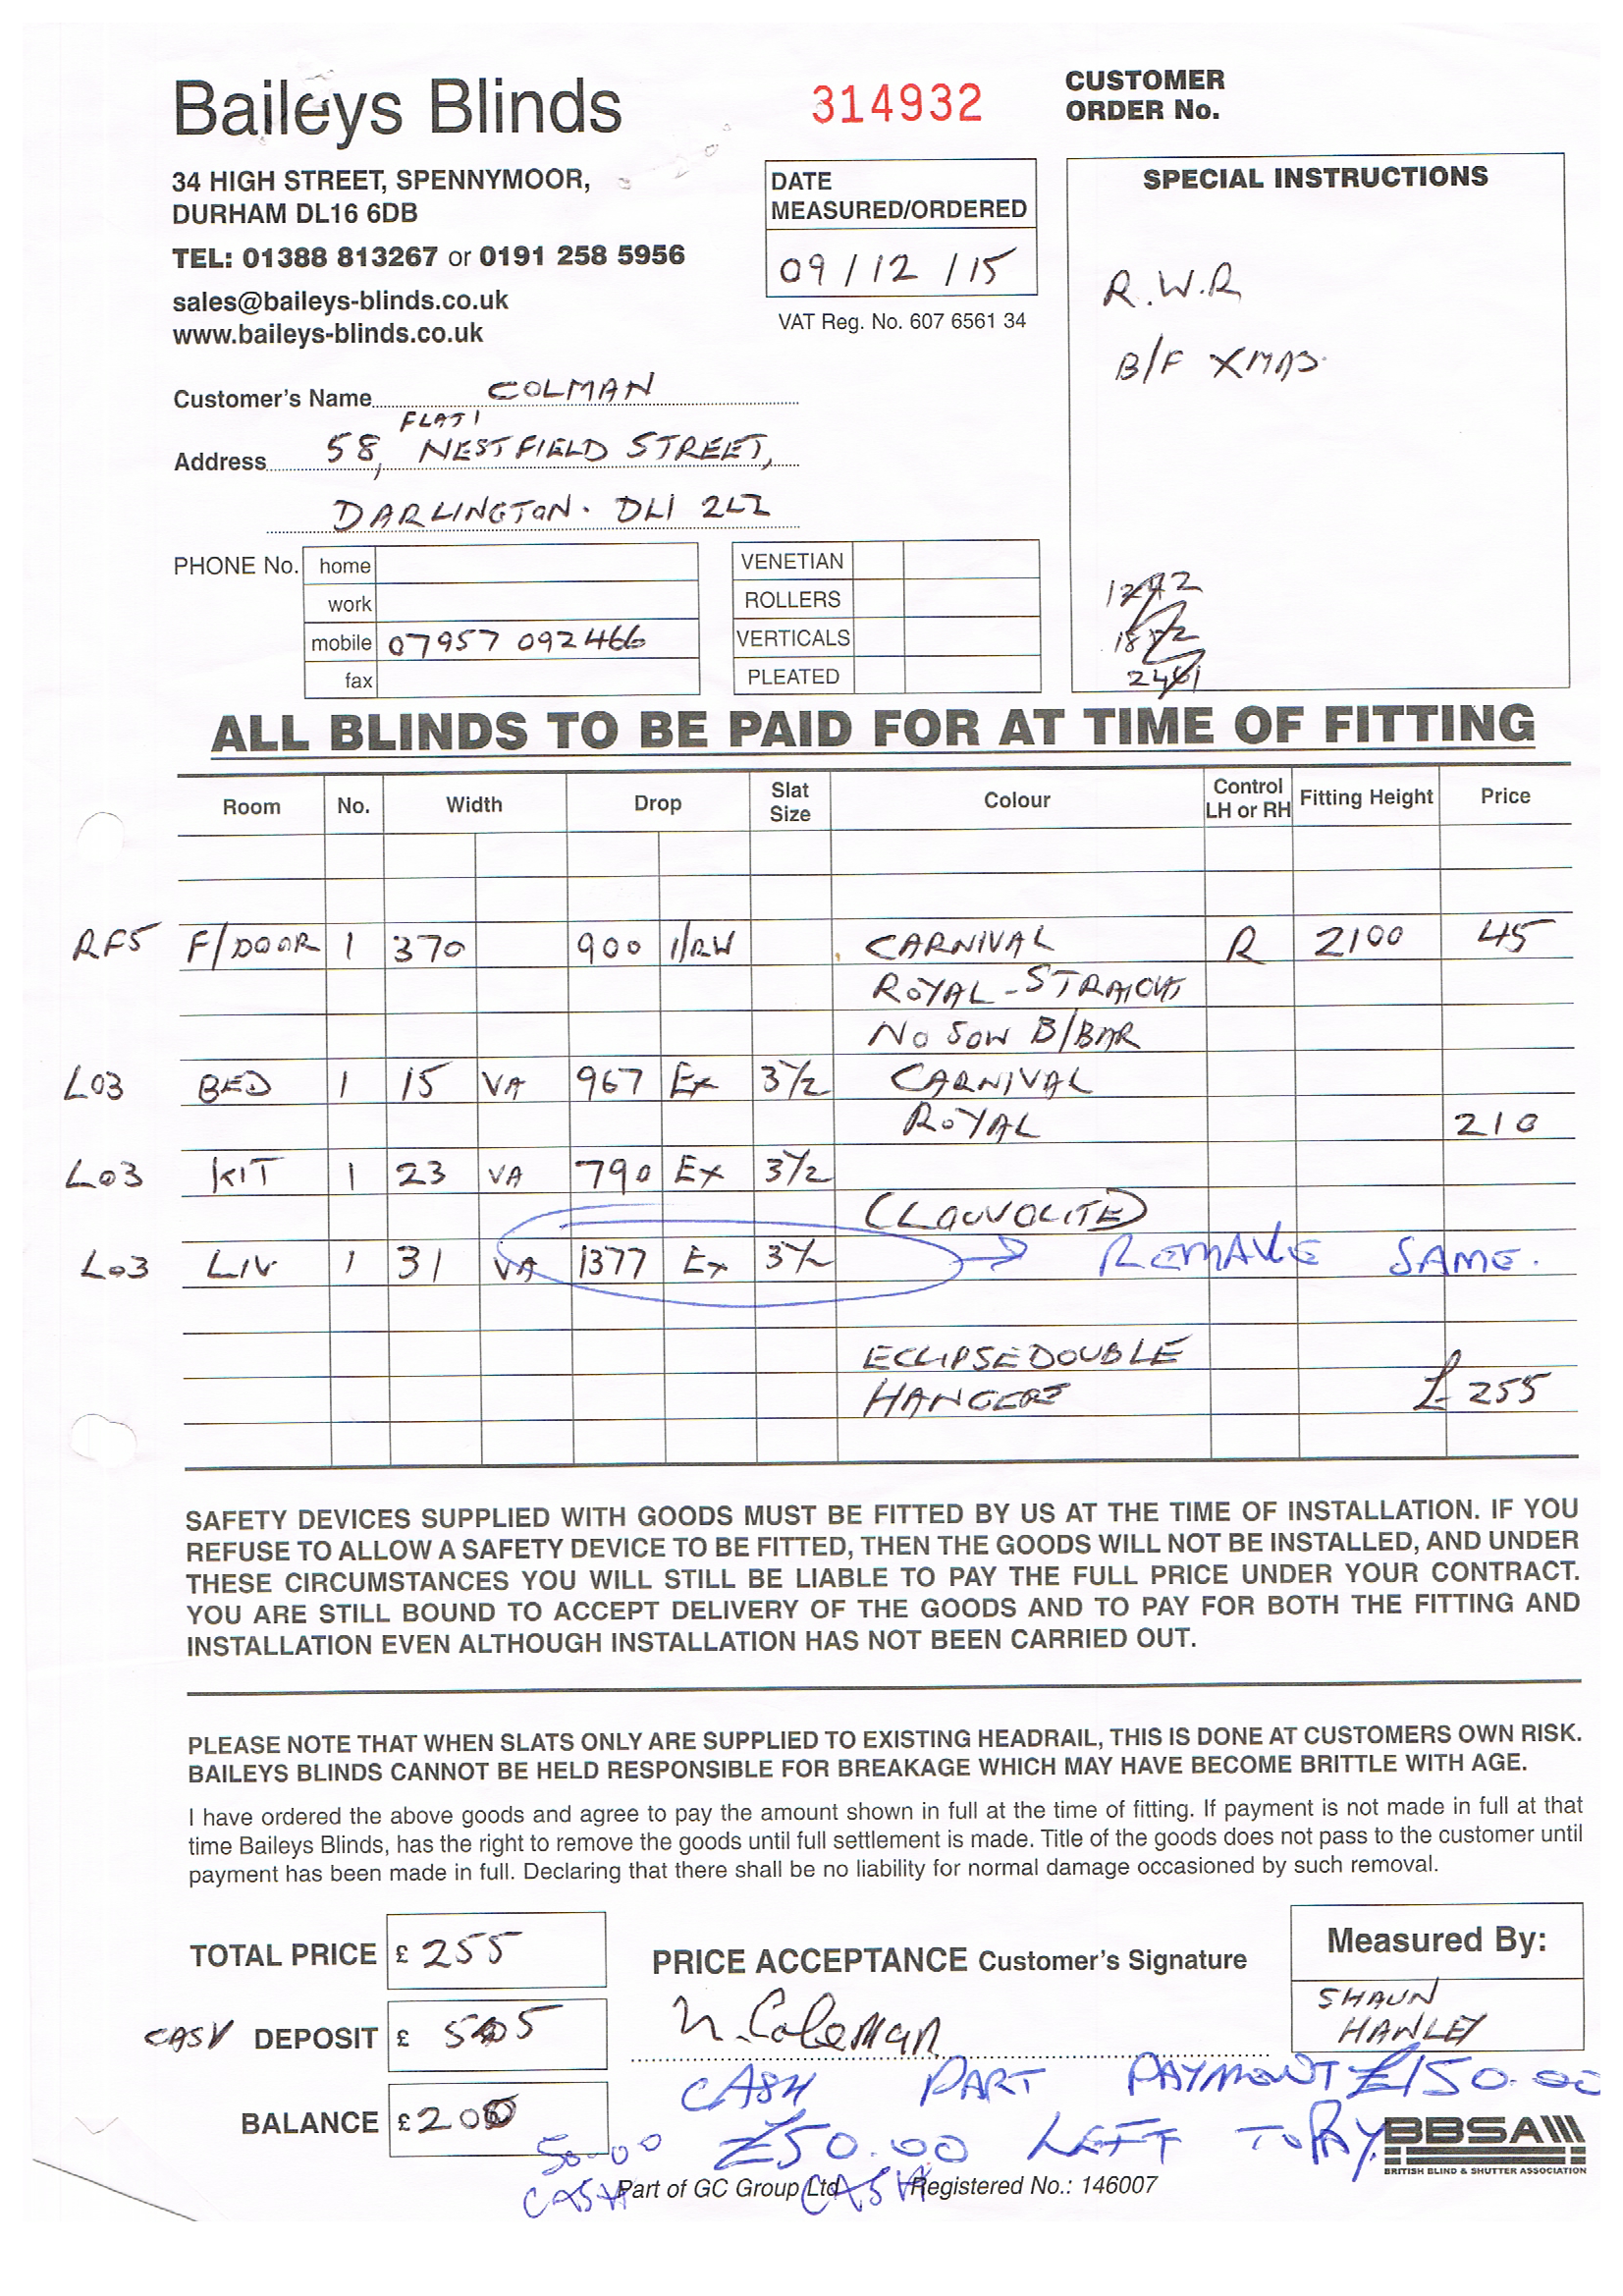 Baileys Blinds
34 HIGH STREET, SPENNYMOOR,
DURHAM DL16 6DB
TEL: 01388 813267 or 0191 258 5956
sales@baileys-blinds.co.uk
www.baileys-blinds.co.uk
314932
CUSTOMER
ORDER No.
DATE
MEASURED/ORDERED
09/12/15
VAT Reg. No. 607 6561 34
SPECIAL INSTRUCTIONS
R.W.R
B/F XMAS.
Customer's Name COLMAN
FLAT 1
Address 58, NESTFIELD STREET,
DARLINGTON. DL1 2LZ
PHONE No. home
work
mobile 07957 092466
fax
VENETIAN
ROLLERS
VERTICALS
PLEATED
ALL BLINDS TO BE PAID FOR AT TIME OF FITTING
Room No. Width Drop Slat Size Colour Control LH or RH Fitting Height Price
RF5 F/DOOR 1 370 900 I/RW CARNIVAL R 2100 45
ROYAL - STRAIGHT
NO SOW B/BAR
L03 BED 1 15 VA 967 EX 3½ CARNIVAL
ROYAL 210
L03 KIT 1 23 VA 790 EX 3½
(LOUVOLITE)
L03 LIV 1 31 VA 1377 EX 3½ REMAKE SAME.
ECLIPSE DOUBLE
HANGERS £255
SAFETY DEVICES SUPPLIED WITH GOODS MUST BE FITTED BY US AT THE TIME OF INSTALLATION. IF YOU
REFUSE TO ALLOW A SAFETY DEVICE TO BE FITTED, THEN THE GOODS WILL NOT BE INSTALLED, AND UNDER
THESE CIRCUMSTANCES YOU WILL STILL BE LIABLE TO PAY THE FULL PRICE UNDER YOUR CONTRACT.
YOU ARE STILL BOUND TO ACCEPT DELIVERY OF THE GOODS AND TO PAY FOR BOTH THE FITTING AND
INSTALLATION EVEN ALTHOUGH INSTALLATION HAS NOT BEEN CARRIED OUT.
PLEASE NOTE THAT WHEN SLATS ONLY ARE SUPPLIED TO EXISTING HEADRAIL, THIS IS DONE AT CUSTOMERS OWN RISK.
BAILEYS BLINDS CANNOT BE HELD RESPONSIBLE FOR BREAKAGE WHICH MAY HAVE BECOME BRITTLE WITH AGE.
I have ordered the above goods and agree to pay the amount shown in full at the time of fitting. If payment is not made in full at that
time Baileys Blinds, has the right to remove the goods until full settlement is made. Title of the goods does not pass to the customer until
payment has been made in full. Declaring that there shall be no liability for normal damage occasioned by such removal.
TOTAL PRICE £ 255
PRICE ACCEPTANCE Customer's Signature
N. Coleman
Measured By:
SHAUN
HANLEY
CASH DEPOSIT £
BALANCE £ 200
CASH PART PAYMENT £150.00
£50.00 LEFT TO PAY.
50.00
CASH
CASH
Part of GC Group Ltd Registered No.: 146007
BBSA
BRITISH BLIND & SHUTTER ASSOCIATION